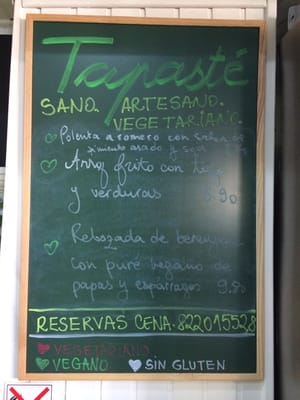 Tapasté
SANO. ARTESANO.
VEGETARIANO.
Polenta a romero con salsa de
pimiento asado y soja
Arroz frito con
y verduras 8.90
Rebozada de
con puré vegano de
papas y espárragos 9.80
RESERVAS CENA. 822015528
VEGETARIANO
VEGANO SIN GLUTEN